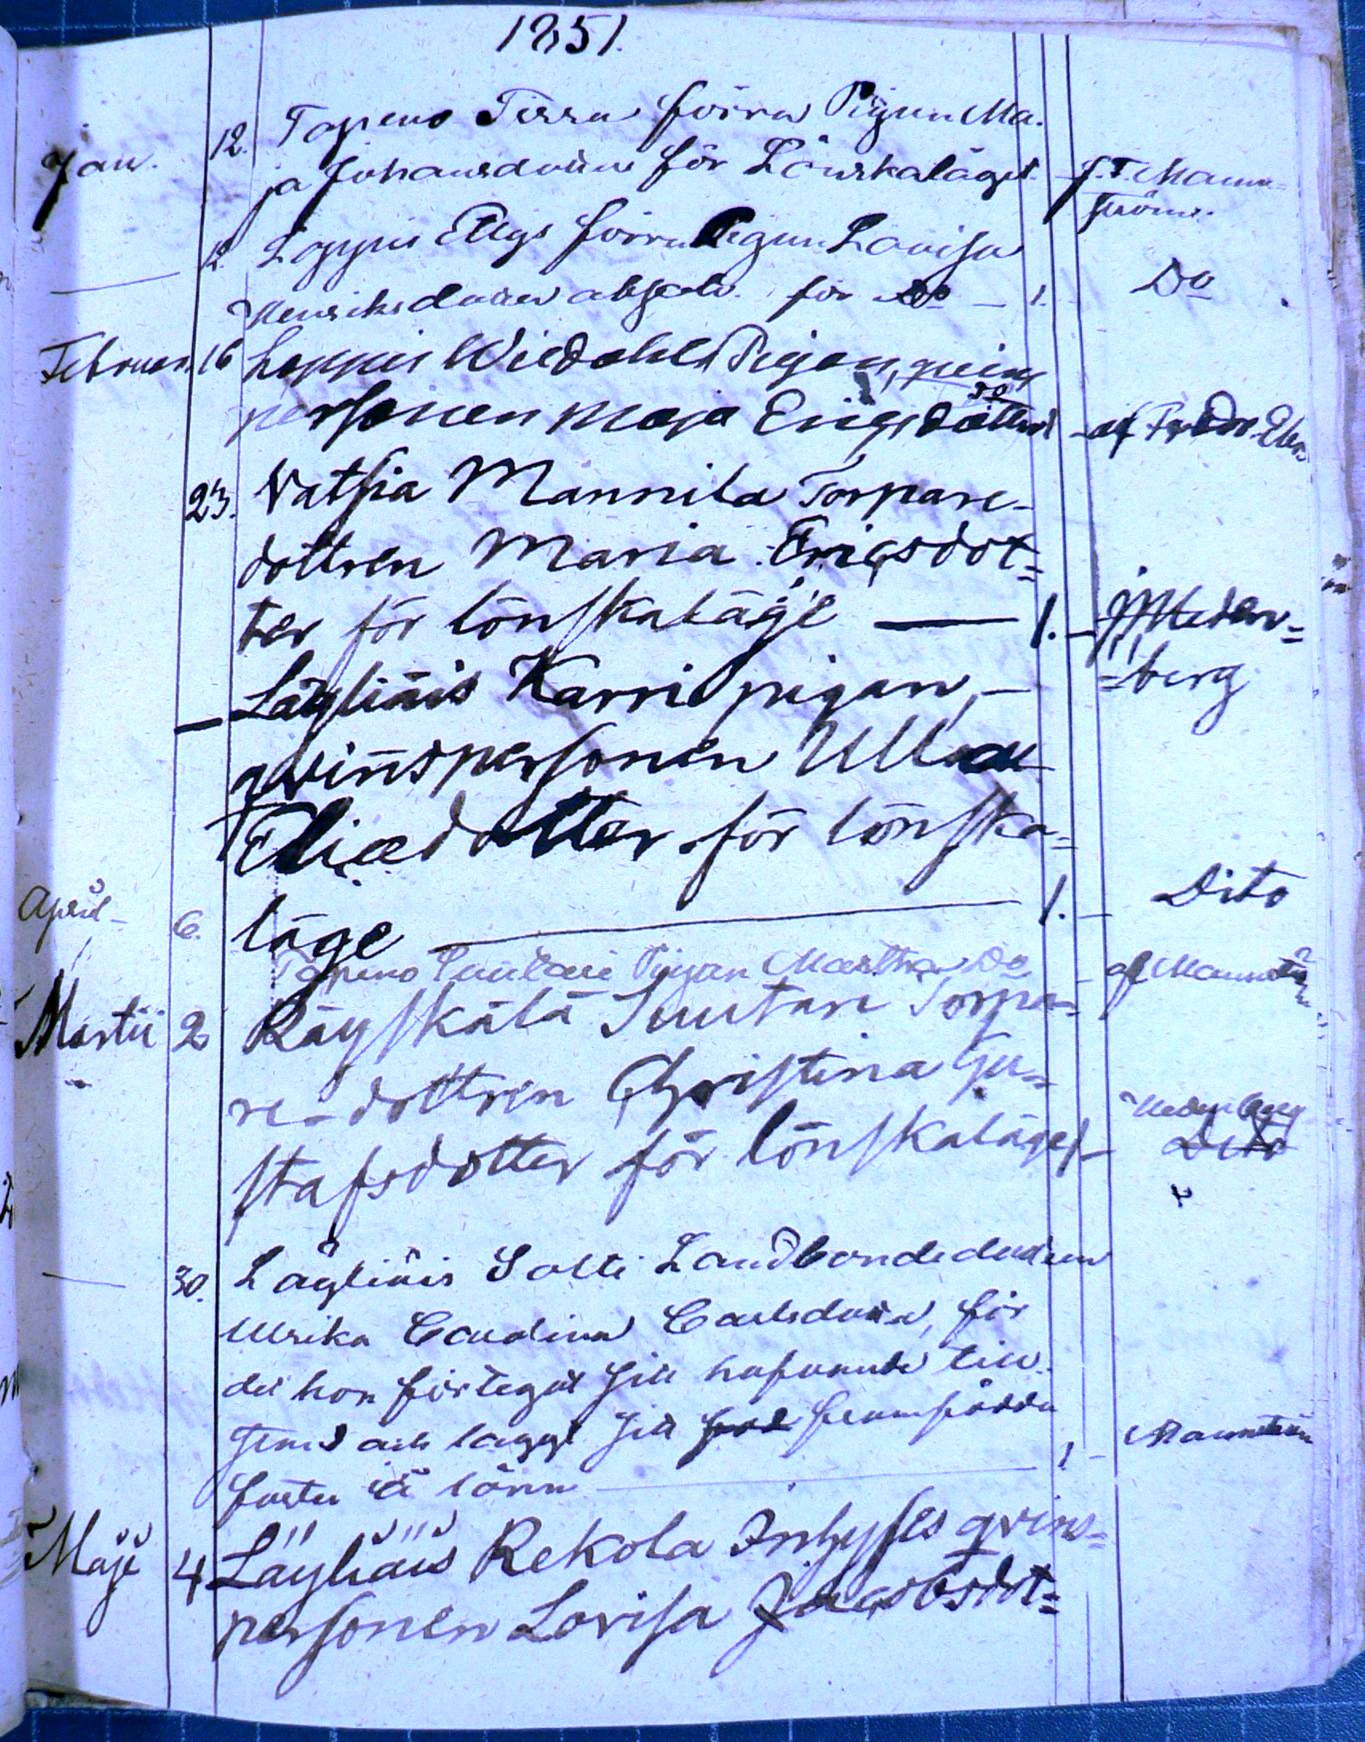 1851.
Jan. 12. Topeno Tirra förra Pigan Ma-
ja Johansdotter för Lönskaläget J. F. Mann-
ström.
12. Loppis Eligs förra Pigan Lovisa
Henriksdotter absolv. för Do — 1. Do
Februar. 16 Loppis Pigan, qvins
personen Maja Eriksdotter af
23. Vatsia Mannila Torpare-
dottren Maria Ericsdot=
ter för lönskaläge — 1. — Meder=
— Läyliäis Karri pigan, — =berg
qvinspersonen Ulla
Eliædotter för lönska=
läge — 1. — Dito
April 6. Topeno Suutari Pigan Martha Do — af Mannström
Martii 2 Räyskälä Suutari Torpa=
re-dottren Christina Gu=
stafsdotter för lönskaläge 1 — Mederberg
Dito
— 30. Läyliäis Solti Landbondedottren
Ulrika Carolina Carlsdotter, för
det hon förtegat sitt hafvande till-
stånd och laggt sitt framfödda
foster i lönn — 1 — Mannström
Maji 4 Läyliäis Rekola Inhyses qvins=
personen Lovisa Jacobsdot=